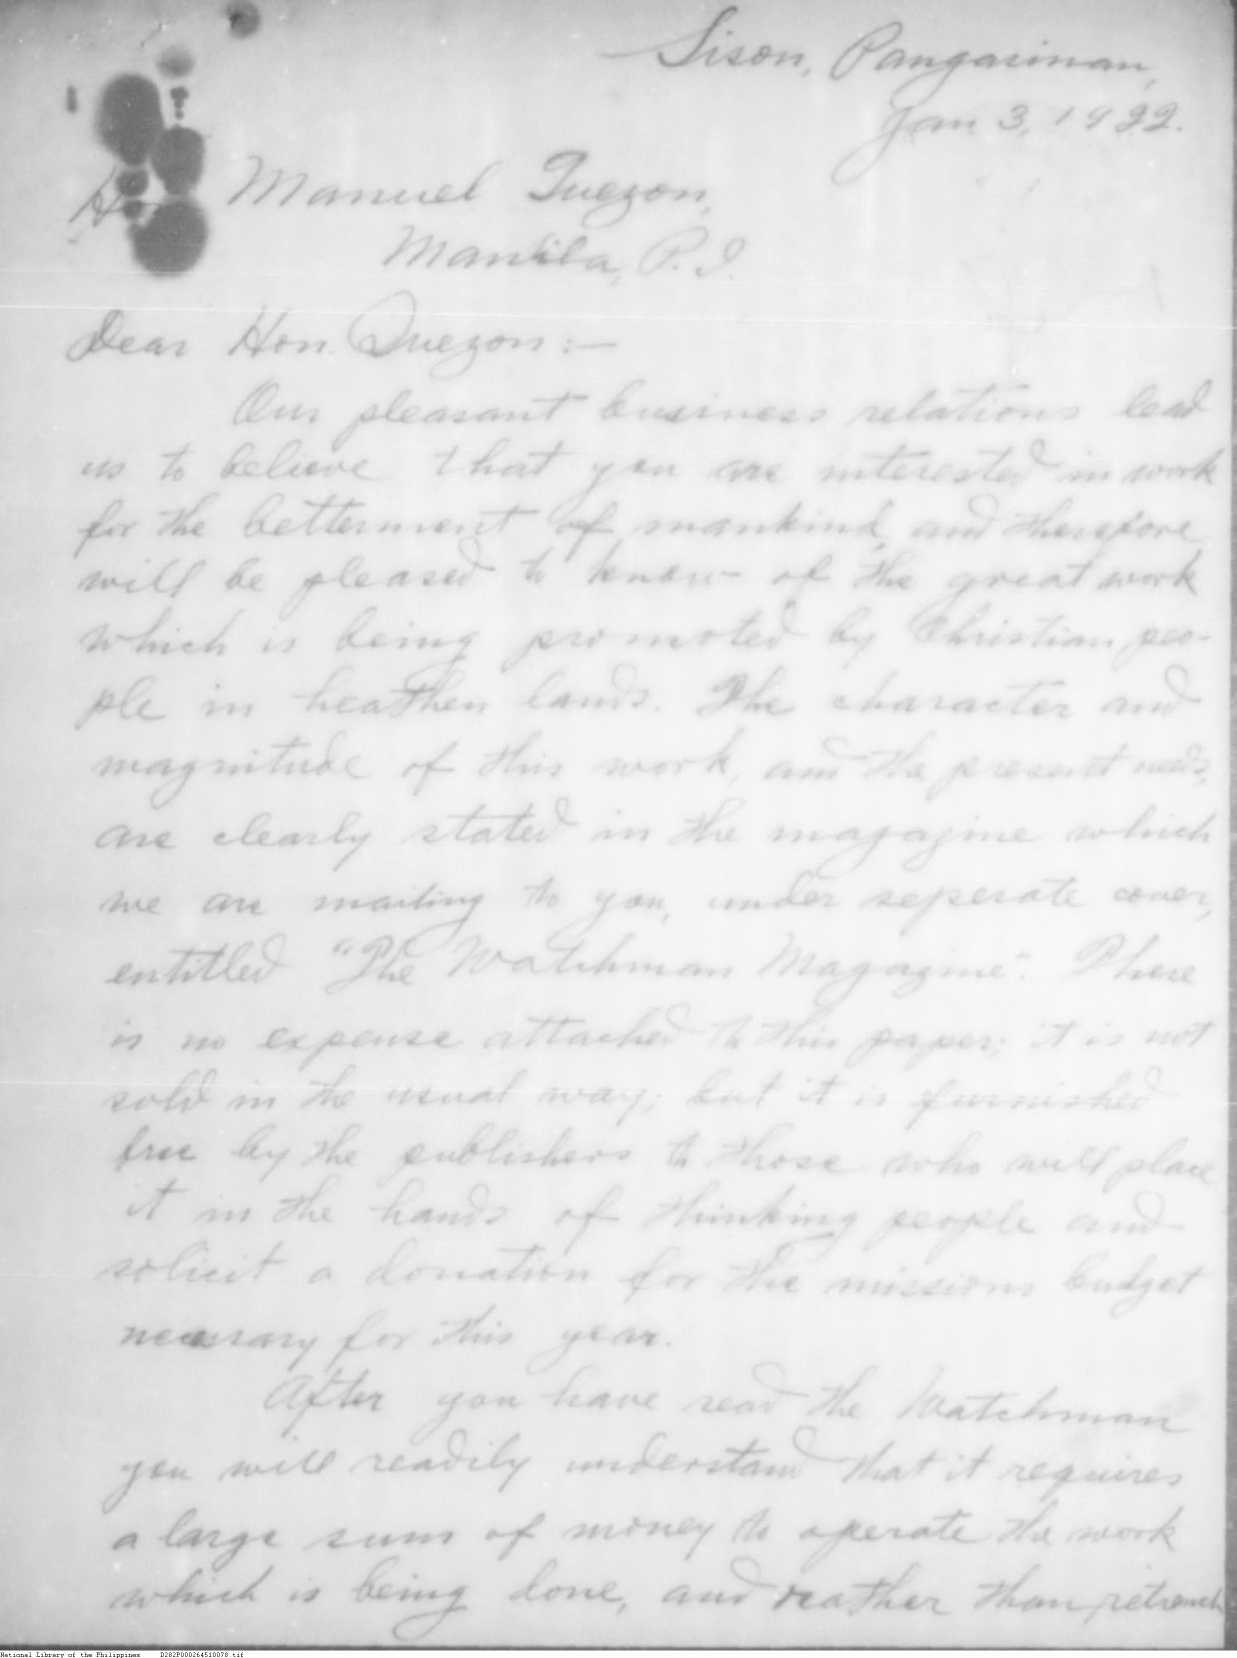 Sison, Pangasinan,
Jan 3, 1922.
Hon Manuel Quezon,
Manila, P. I.
Dear Hon. Quezon:—
Our pleasant business relations lead
us to believe that you are interested in work
for the betterment of mankind, and therefore
will be pleased to know of the great work
which is being promoted by Christian peo-
ple in heathen lands. The character and
magnitude of this work, and the present needs,
are clearly stated in the magazine which
we are mailing to you, under seperate cover,
entitled "The Watchman Magazine". There
is no expense attached to this paper; it is not
sold in the usual way; but it is furnished
free by the publishers to those who will place
it in the hands of thinking people and
solicit a donation for the missions budget
necessary for this year.
After you have read the Watchman
you will readily understand that it requires
a large sum of money to operate the work
which is being done, and reather than retrench
National Library of the Philippines D282P000264510078.tif